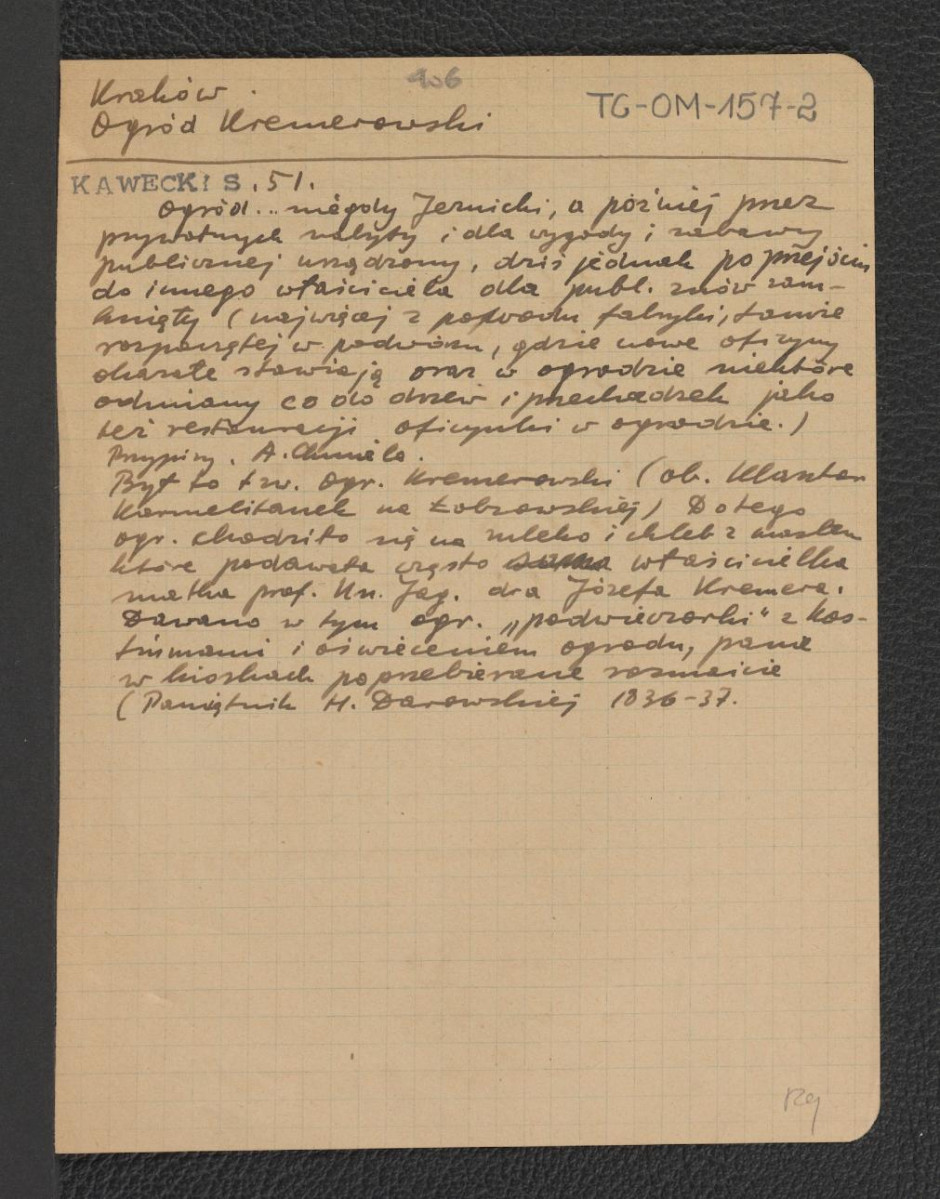 406
Kraków.
Ogród Kremerowski
TG-OM-157-2
KAWECKI S. 51.
Ogród... niegdy Jeznicki, a później przez
prywatnych nabyty i dla wygody i zabawy
publicznej urządzony, dziś jednak po przejściu
do innego właściciela dla publ. znów zam-
knięty (najwięcej z powodu fabryki, tamże
rozpoczętej w podwórzu, gdzie nowe oficyny
okazałe stawiają oraz w ogrodzie niektóre
odmiany co do drzew i przechadzek jako
też restauracji oficynki w ogrodzie.)
Przypisy. A. Chmiela.
Był to tzw. ogr. Kremerowski (ob. Klasztor
Karmelitanek na Łobzowskiej) Do tego
ogr. chodziło się na mleko i chleb z masłem
które podawała często właścicielka
matka prof. Un. Jag. dra Józefa Kremera.
Dawano w tym ogr. „podwieczorki" z kos-
tiumami i oświeceniem ogrodu, panie
w kioskach poprzebierane rozmaicie
(Pamiętnik H. Darowskiej 1836-37.